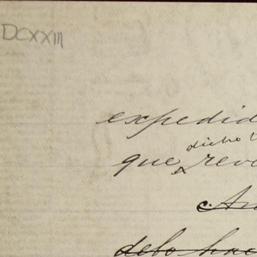 DCXXIII
expedid
dicho
que reve
debo hac